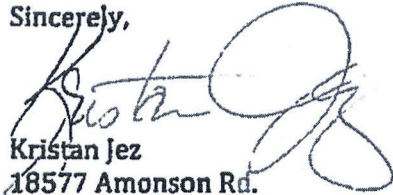 Sincerely,
Kristan Jez
Kristan Jez
18577 Amonson Rd.